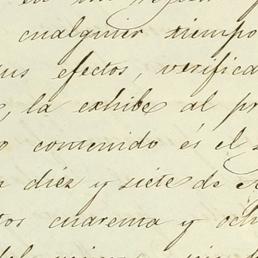 cualquier tiempo
us efectos, verifica
, la exhibe al pr
o contenido és el
n diez y siete de
tos cuarema y och